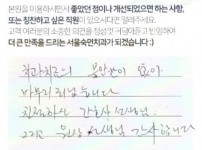 본원을 이용하시면서 좋았던 점이나 개선되었으면 하는 사항,
또는 칭찬하고 싶은 직원이 있으시다면 말해주세요.
고객 여러분의 소중한 의견을 정성껏 귀담아듣고 반영하여
더 큰 만족을 드리는 서울숙면치과가 되겠습니다 :)
치과치료의 불안감이 많아
마무리
친절하신 간호사 선생님
그리고 원장 선생님 감사합니다